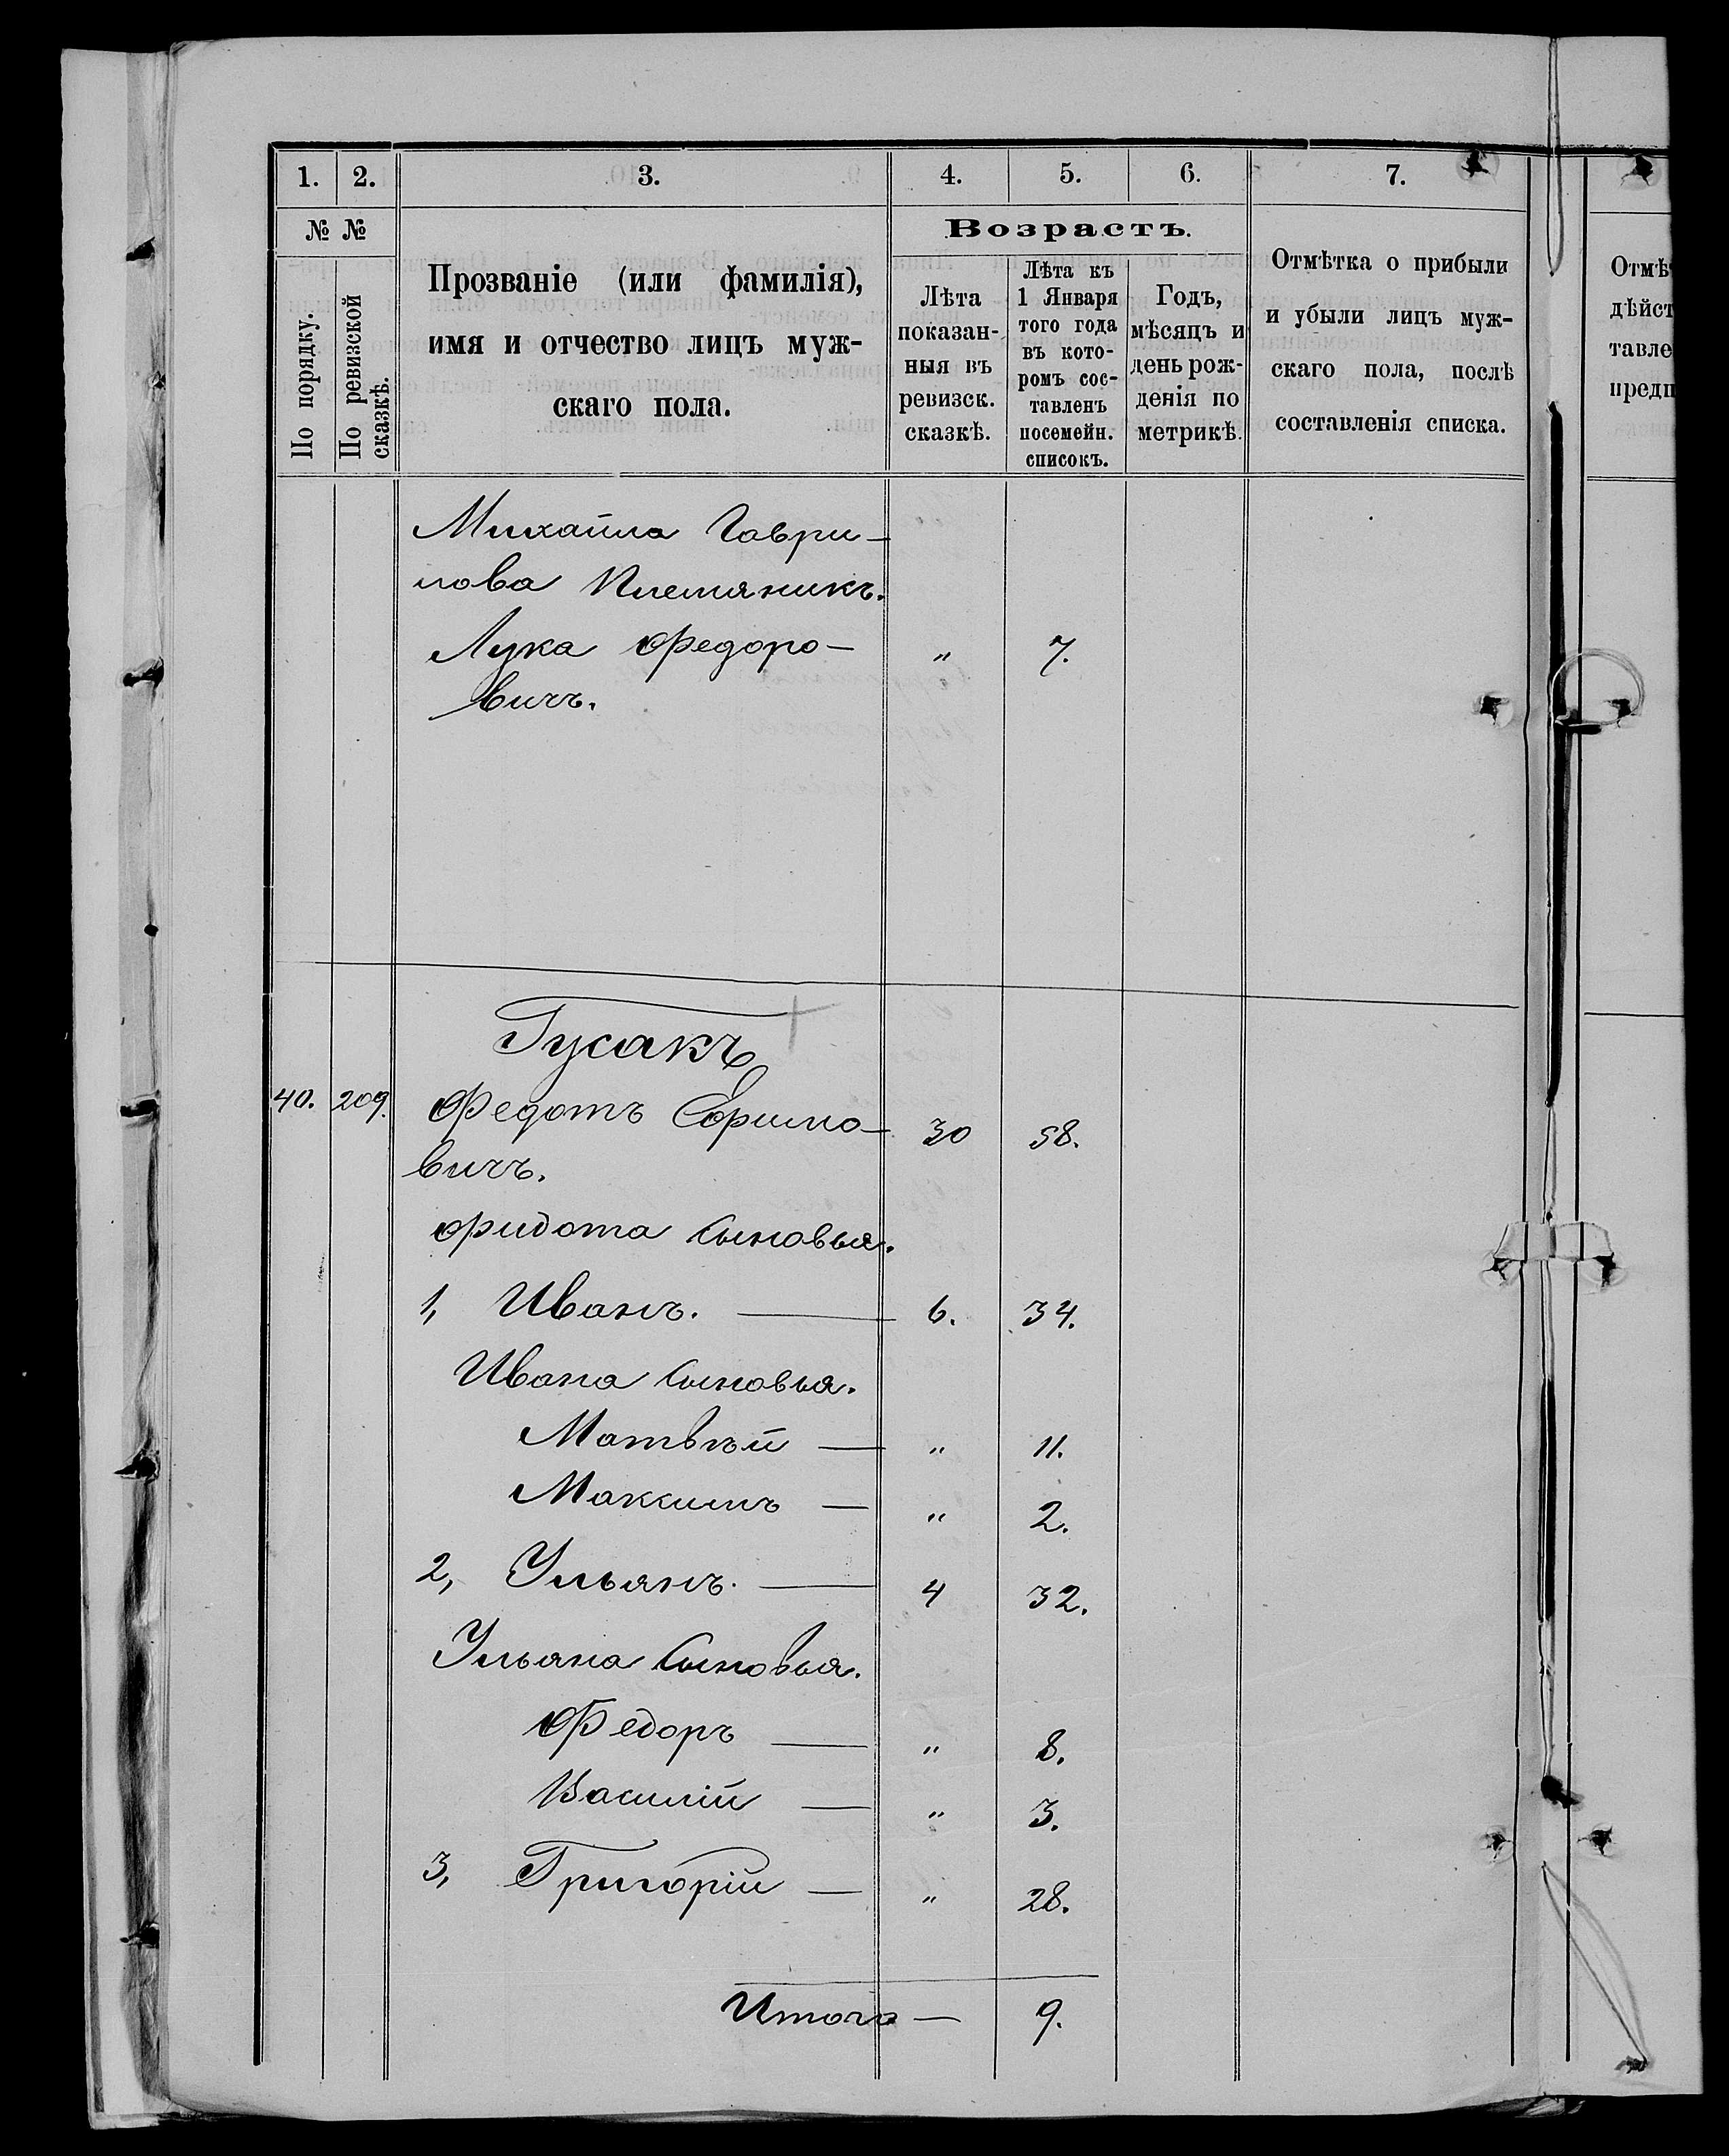 1. 2. 3. 4. 5. 6. 7.
№ №
По порядку.
По ревизской сказкѣ.
Прозваніе (или фамилія),
имя и отчество лицъ муж-
скаго пола.
Возрастъ.
Лѣта
показан-
ныя въ
ревизск.
сказкѣ.
Лѣта къ
1 Января
того года
въ кото-
ромъ сос-
тавленъ
посемейн.
списокъ.
Годъ,
мѣсяцъ и
день рож-
денія по
метрикѣ.
Отмѣтка о прибыли
и убыли лицъ муж-
скаго пола, послѣ
составленія списка.
Отмѣ
дѣйст
тавле
предп
Михайла Гаври-
лова Племяникъ.
Лука Федоро- " 7.
вичъ.
Гусакъ
40. 209. Федотъ Ефимо- 30 58.
вичъ.
Фидота Сыновья.
1, Иванъ. — 6. 34.
Ивана Сыновья.
Матвѣй — " 11.
Максимъ — " 2.
2, Ульянъ. — 4 32.
Ульяна Сыновья.
Федоръ — " 8.
Василій — " 3.
3, Григорій — " 28.
Итого — 9.